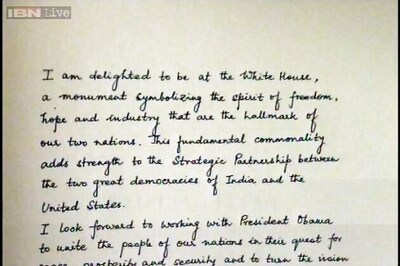 IBN Live
I am delighted to be at the White House,
a monument symbolizing the spirit of freedom,
hope and industry that are the hallmark of
our two nations. This fundamental commonality
adds strength to the Strategic Partnership between
the two great democracies of India and the
United States.
I look forward to working with President Obama
to unite the people of our nations in their quest for
peace, prosperity and security and to turn the vision